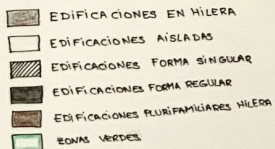 EDIFICACIONES EN HILERA
EDIFICACIONES AISLADAS
EDIFICACIONES FORMA SINGULAR
EDIFICACIONES FORMA REGULAR
EDIFICACIONES PLURIFAMILIARES HILERA
ZONAS VERDES